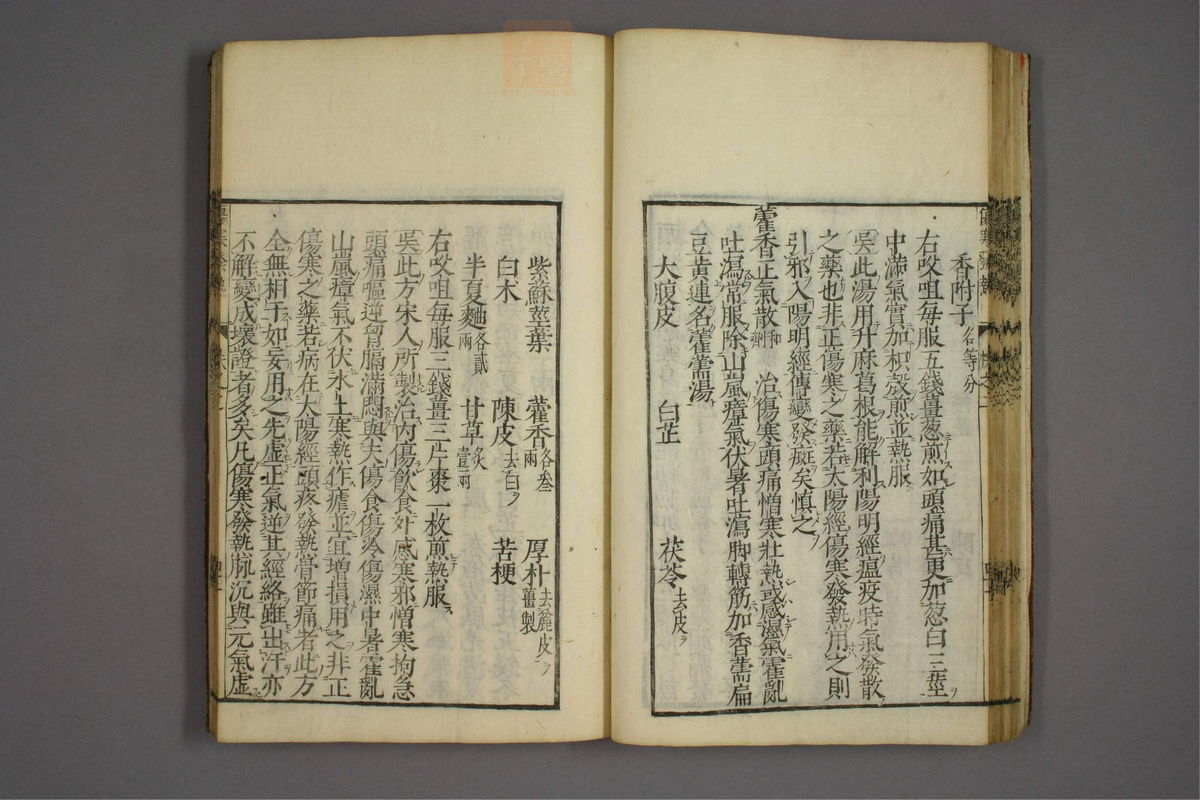 香附子各等分
右㕮咀每服五錢薑葱煎如頭痛甚更加葱白三莖
中滿氣實加枳殼煎並熱服
吳此湯用升麻葛根能解利陽明經瘟疫時氣發散
之藥也非正傷寒之藥若太陽經傷寒發熱用之則
引邪入陽明經傳變發癍矣慎之
藿香正氣散和劑治傷寒頭痛憎寒壯熱或感濕氣霍亂
吐瀉常服除山嵐瘴氣伏暑吐瀉脚轉筋加香薷扁
豆黃連名藿薷湯
大腹皮 白芷 茯苓去皮
紫蘇莖葉 藿香各叁兩 厚朴去麁皮薑製
白术 陳皮去白 苦梗
半夏麯各貳兩 甘草炙壹兩
右㕮咀每服三錢薑三片棗一枚煎熱服
吳此方宋人所製治內傷飲食外感寒邪憎寒拘急
頭痛嘔逆胷膈滿悶與夫傷食傷冷傷濕中暑霍亂
山嵐瘴氣不伏水土寒熱作瘧並宜增損用之非正
傷寒之藥若病在太陽經頭疼發熱骨節痛者此方
全無相干如妄用之先虛正氣逆其經絡雖出汗亦
不解變成壞證者多矣凡傷寒發熱脉沉與元氣虛